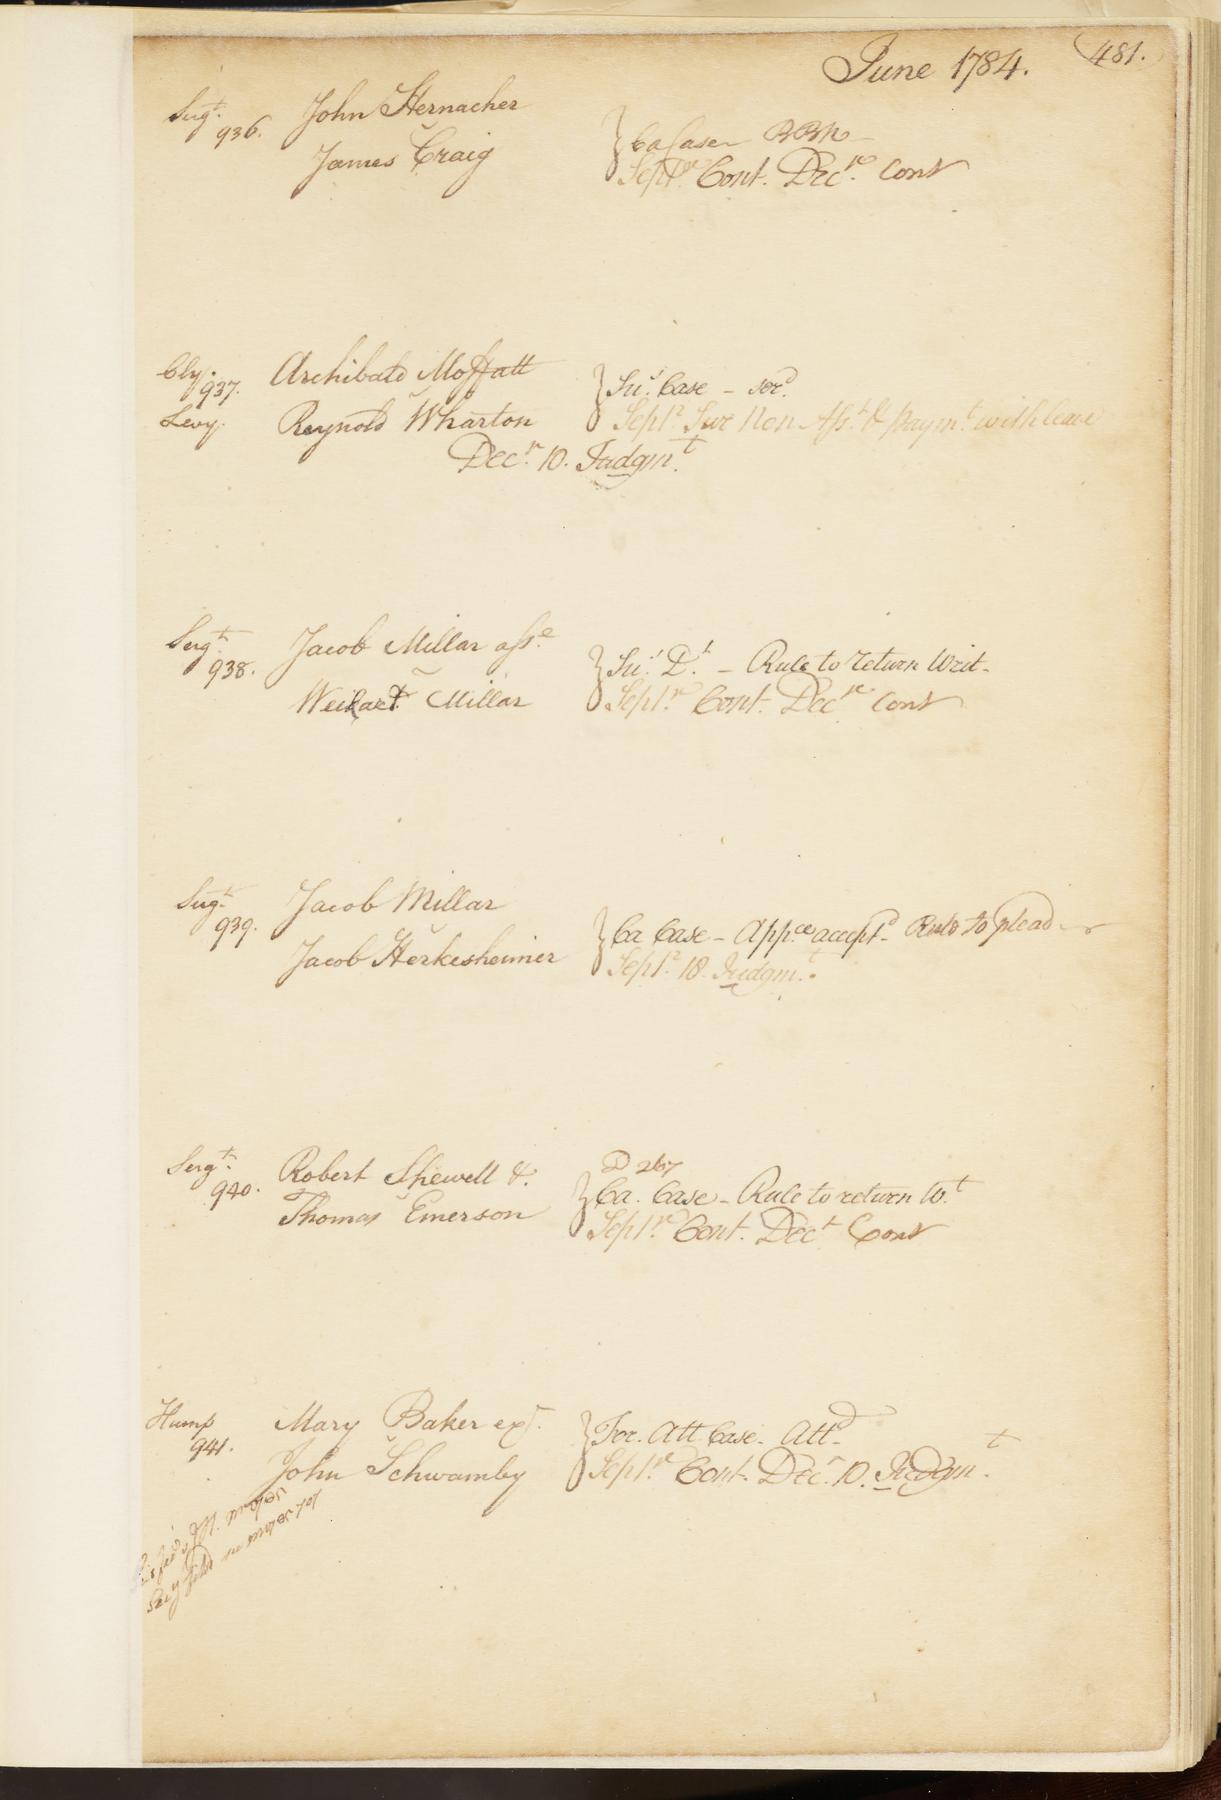 June 1784. 481.
Sergt. John Hernacher
936.
James Craig
Ca Case
Septr. Cont. Decr. Cont
Cly. Archibald Moffatt
937.
Levy. Reynold Wharton
Su: Case – serd.
Septr. Sur Non Asst. & paymt. with leave
Decr. 10. Judgmt.
Sergt. Jacob Millar asse.
938.
Weikart Millar
Su: Dt. – Rule to return Writ.
Septr. Cont. Decr. Cont
Sergt. Jacob Millar
939.
Jacob Herkesheimer
Ca Case – Appce accepd. Rule to plead
Septr. 18. Judgmt.
Sergt. Robert Shewell &.
940.
Thomas Emerson
D 267
Ca. Case – Rule to return Wt.
Septr. Cont. Decr Cont
Hump Mary Baker ex.
941.
John Schwamby
For. Att. Case – Attd.
Septr. Cont. Decr. 10. Judgmt.